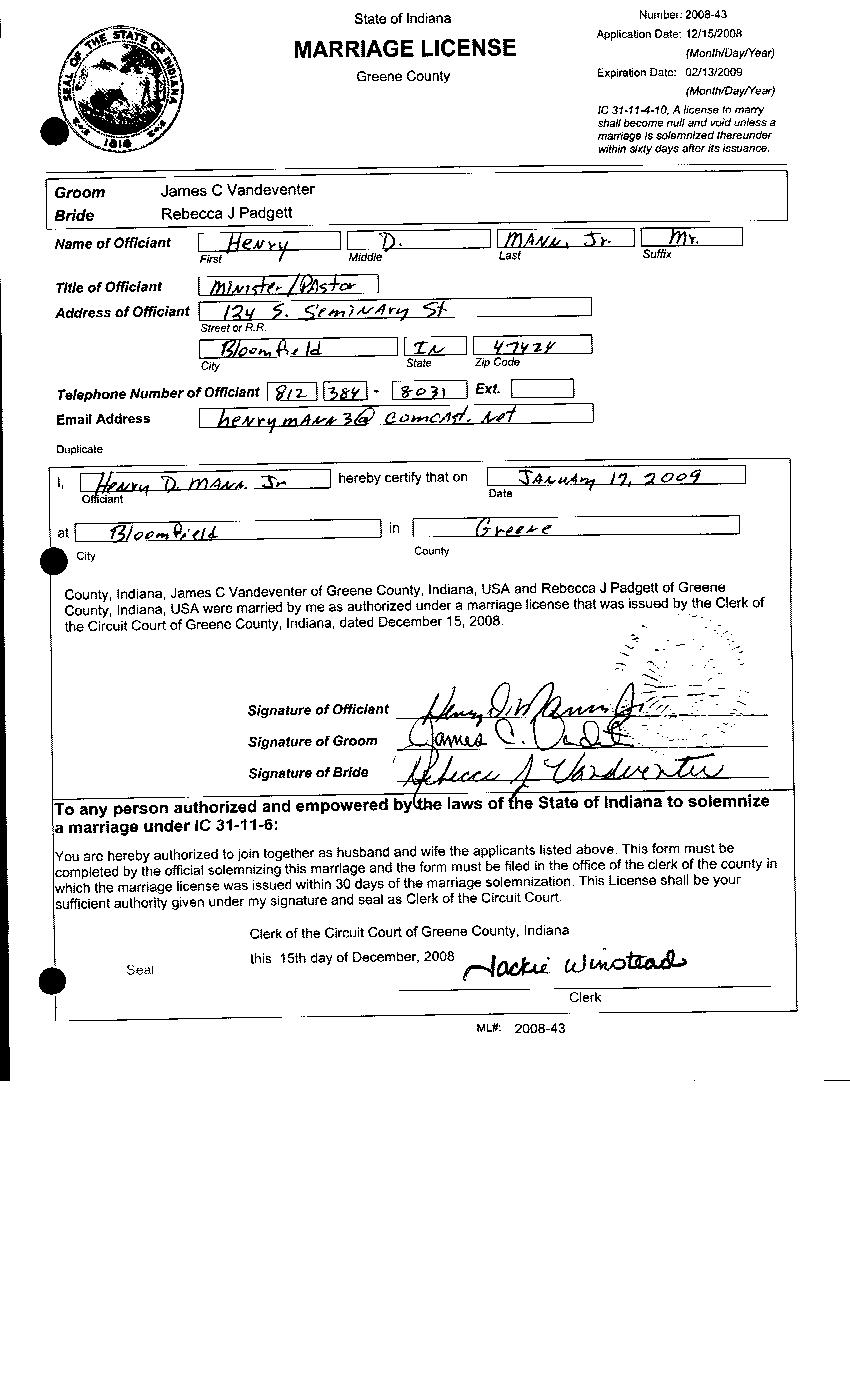 State of Indiana
MARRIAGE LICENSE
Greene County
Number: 2008-43
Application Date: 12/15/2008
(Month/Day/Year)
Expiration Date: 02/13/2009
(Month/Day/Year)
IC 31-11-4-10, A license to marry
shall become null and void unless a
marriage is solemnized thereunder
within sixty days after its issuance.
SEAL OF THE STATE OF INDIANA
1816
Groom James C Vandeventer
Bride Rebecca J Padgett
Name of Officiant Henry D. Mann, Jr. Mr.
First Middle Last Suffix
Title of Officiant Minister/Pastor
Address of Officiant 124 S. Seminary St
Street or R.R.
Bloomfield IN 47424
City State Zip Code
Telephone Number of Officiant 812 384 - 8031 Ext.
Email Address henrymann3@comcast.net
Duplicate
I, Henry D. Mann. Jr hereby certify that on January 17, 2009
Officiant Date
at Bloomfield in Greene
City County
County, Indiana, James C Vandeventer of Greene County, Indiana, USA and Rebecca J Padgett of Greene
County, Indiana, USA were married by me as authorized under a marriage license that was issued by the Clerk of
the Circuit Court of Greene County, Indiana, dated December 15, 2008.
Signature of Officiant Henry D. Mann Jr.
Signature of Groom James C.
Signature of Bride Rebecca J Vandeventer
To any person authorized and empowered by the laws of the State of Indiana to solemnize
a marriage under IC 31-11-6:
You are hereby authorized to join together as husband and wife the applicants listed above. This form must be
completed by the official solemnizing this marriage and the form must be filed in the office of the clerk of the county in
which the marriage license was issued within 30 days of the marriage solemnization. This License shall be your
sufficient authority given under my signature and seal as Clerk of the Circuit Court.
Clerk of the Circuit Court of Greene County, Indiana
Seal this 15th day of December, 2008 Jackie Winstead
Clerk
ML#: 2008-43